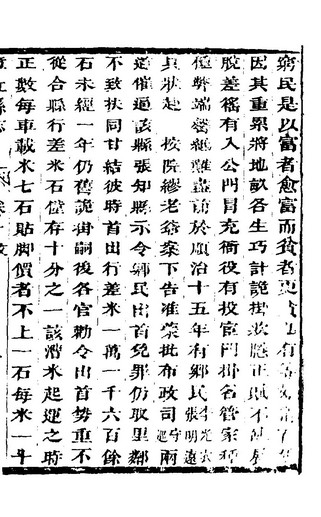 窮民是以富者愈富而貧者更貧也有等好
因其重累將地畝各生巧計詭掛欺隱正賦不
脫差徭有入公門冒充衙役有投宦門掛名管家種
種弊端難盡前於順治十五年有鄉民李光 張明遠
具狀赴 按院繆老爺案下告准蒙批布政司 守巡兩
道催過該縣張知縣示令鄉民出首免罪仍取里鄰
不致扶同甘結彼時首出行差米一萬一千六百餘
石未經一年仍舊詭掛嗣後各官勒令出首勢重不
從合縣行差米石僅存十分之一該漕米起運之時
正數每車載米七石貼脚價者不上一石每米一斗